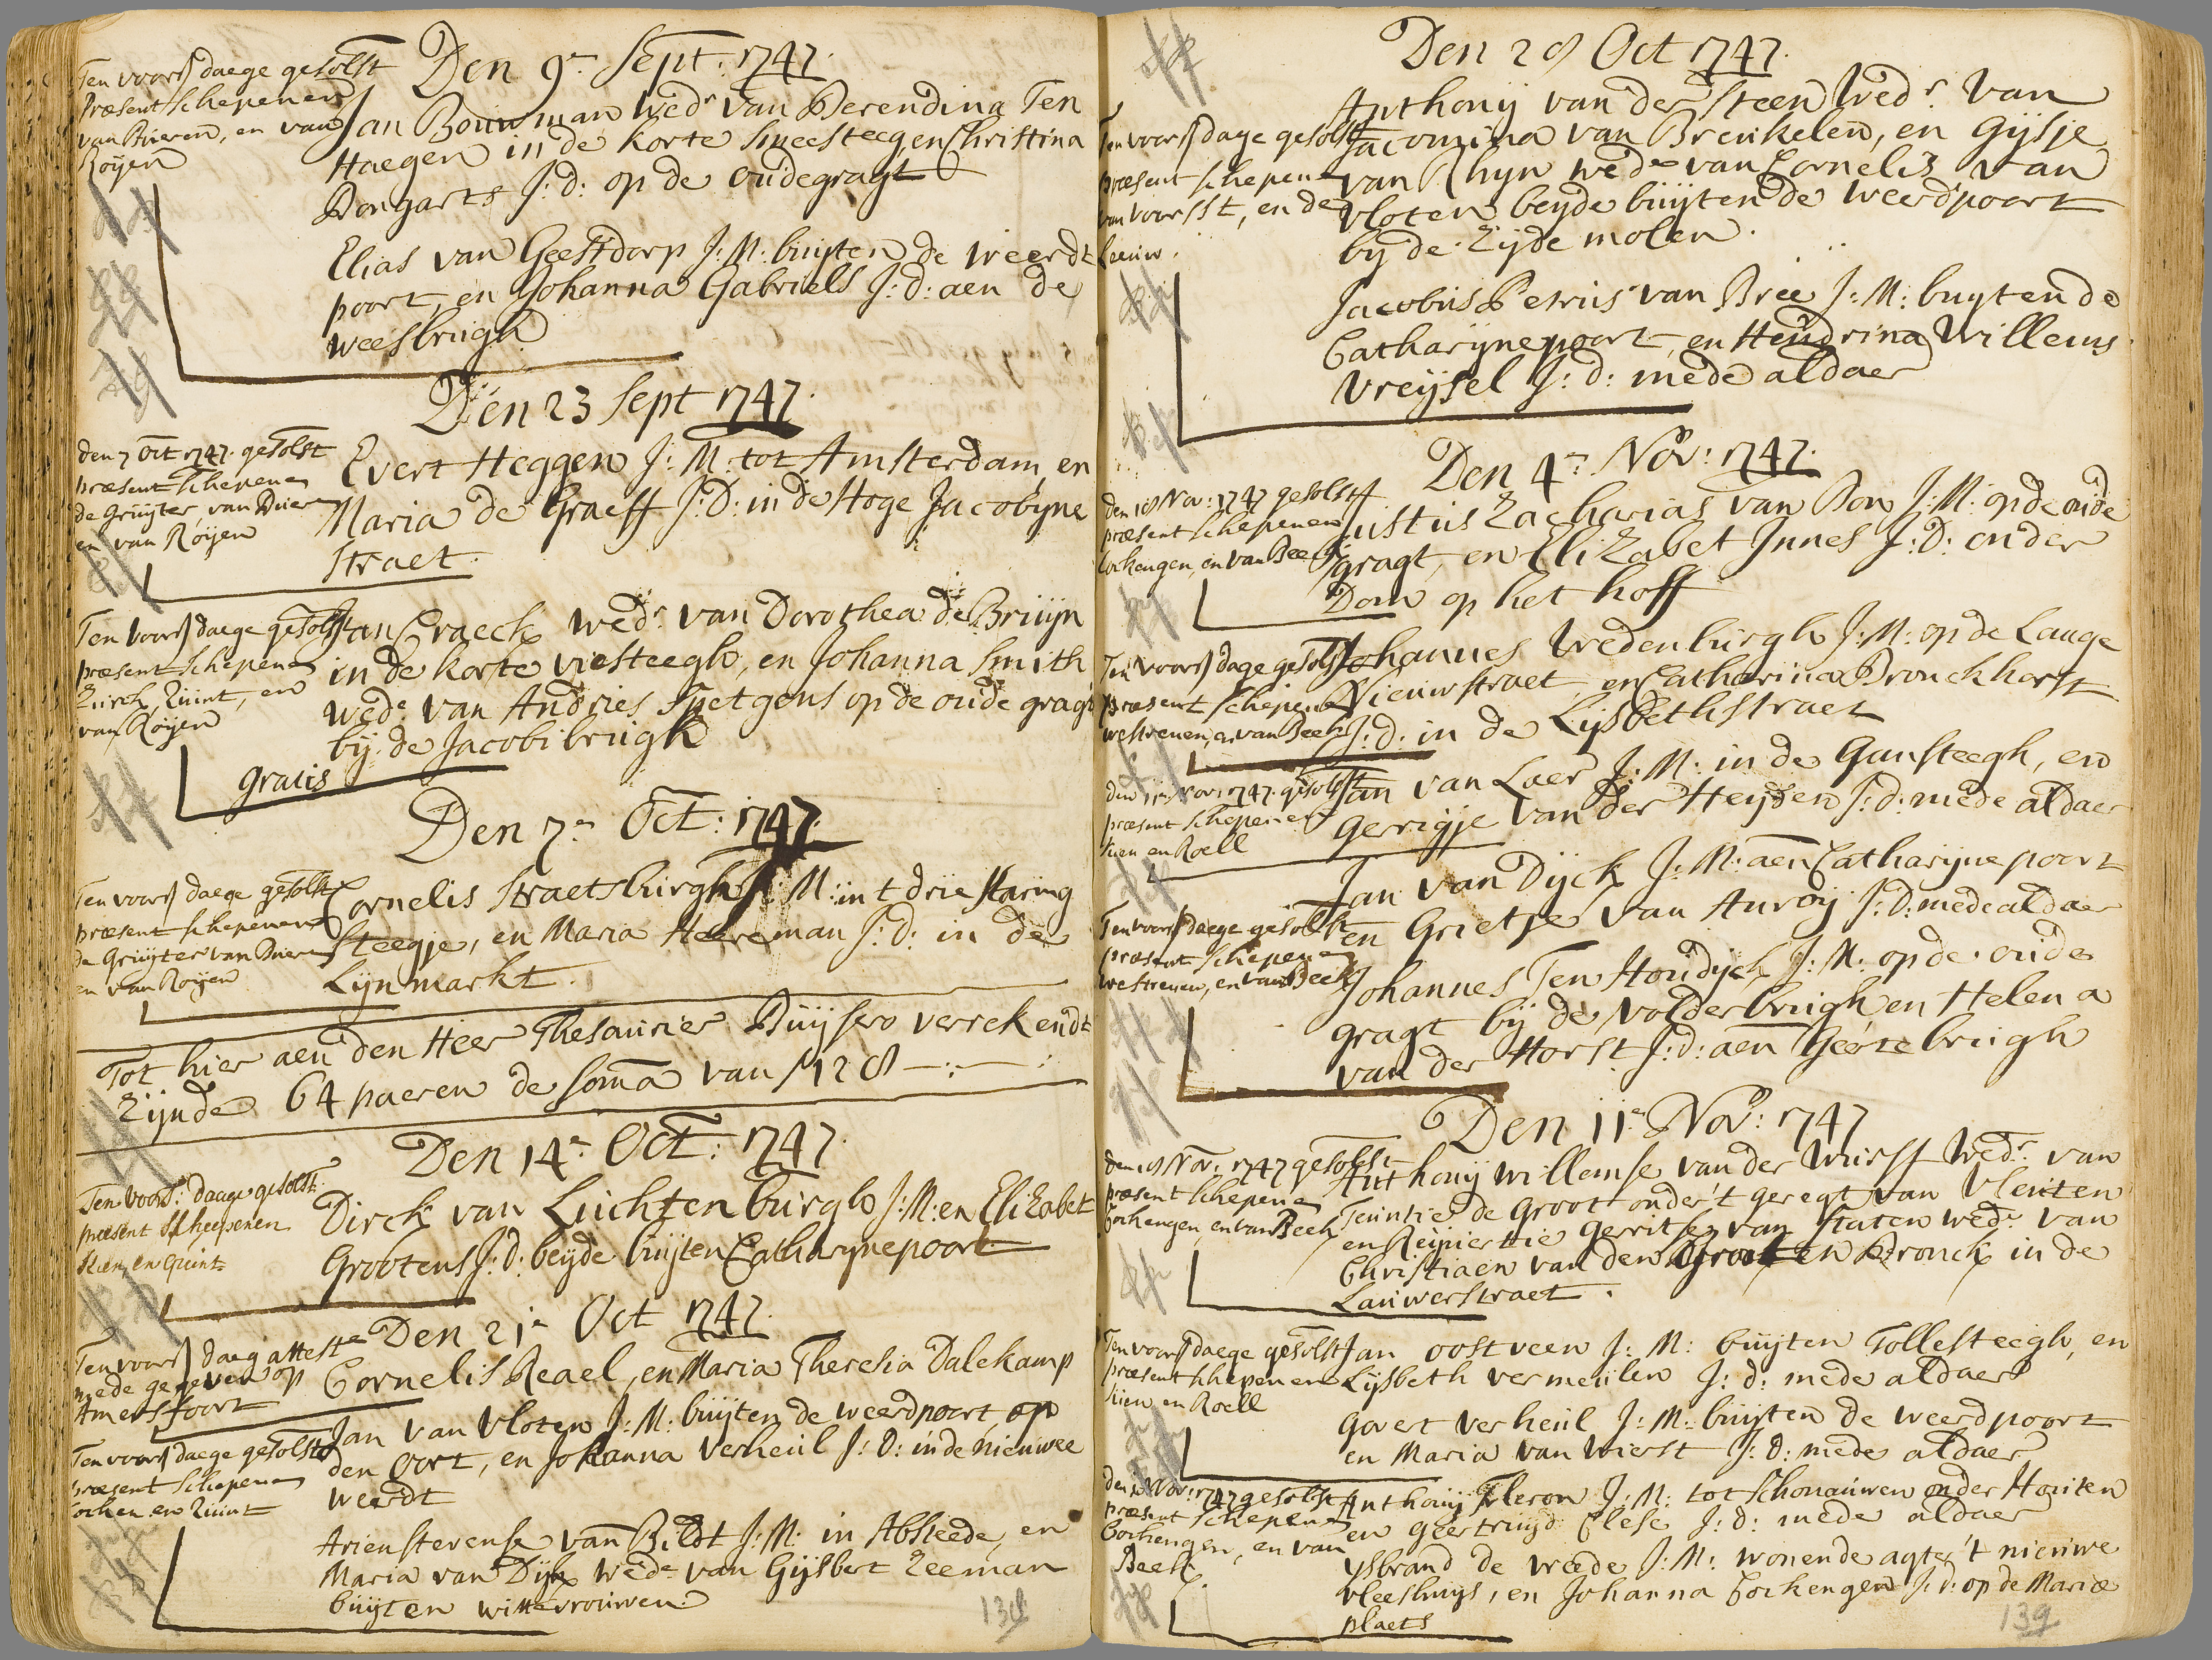 Den 9e Sept: 1747.
Ten voorß daege gesolst
præsent schepenen
van Bueren, en van
Roijen
Jan Bouwman wedr van Berendina Ten
Haegen in de korte Smeesteeg en Christina
Bongarts J:d: op de oude gragt
Elias van Geestdorp J:M: buijten de weerdt
poort, en Johanna Gabriels J:d: aen de
weesbrugh
Den 23 Sept 1747.
den 7 Oct 1747. gesolst
præsent schepenen
de Gruijter, van Buer
en van Roijen
Evert Heggen J:M: tot Amsterdam, en
Maria de Graeff J:D: in de Hoge Jacobijne
straet.
Ten voorß daege gesolst
præsent schepenen
Quint, en
van Roijen
Jan Craeck wedr van Dorothea de Bruijn
in de korte viesteegh, en Johanna Smith
wede van Andries Spetgens op de oude gragt
bij de Jacobibrugh
gratis
Den 7e Oct: 1747.
Ten voorß daege gesolst
præsent schepenen
de Gruijter van Buere
en van Roijen
Cornelis Straetsburgh J:M: in t drie Haring
steegje, en Maria Heereman J:d: in de
Lijnmarkt.
Tot hier aen den Heer Thesaurier Buijsero verrekendt
Zijnde 64 paeren de soma van f128 —:—:
Den 14e Oct: 1747.
Ten voorß: daage gesolst
præsent Scheepenen
Kien, en Quint
Dirck van Luchtenburgh J:M: en Elizabet
Grootens J:d: beijde buijten Catharijnepoort
Den 21e Oct 1747.
Ten voorß daeg atteste
mede gegeven op
Amersfoort
Cornelis Reael, en Maria Theresia Dalekamp
Ten voorß daege gesolst
præsent schepenen
en Quint
Jan van Vloten J:M: buijten de weerdpoort op
den Oort, en Johanna Verheul J:D: in de nieuwe
weerdt
Arienstevense van Bildt J:M: in Abstede, en
Maria van Dijk wede van Gijsbert Zeeman
buijten wittevrouwen.
138
Den 28 Oct 1747.
Ten voorß dage gesolst
præsent schepenen
van Voorst, en de
Leeuw.
Anthonij van der Steen wedr. van
Jacomina van Breukelen, en Gijsje
van Rhijn wede van Cornelis van
Vloten beijde buijten de weerdpoort
bij de Zijdemolen.
Jacobus Petrus van Bree J:M: buyten de
Catharijnepoort, en Hendrina Willems
Vreijsel J:d: mede aldaer
Den 4e Nov: 1747.
den 18 Nov: 1747 gesolst
præsent schepenen
Cockengen, en van Beeck
Justus Zacharias van Bon J:M: op de oude
gragt, en Elizabet Innes J:D: onder
Dom op het hoff
Ten voorß dage gesolst
præsent schepenen
westrenen, en van Beeck
Johannes Vredenburgh J:M: op de Lange
Nieuwstraet, en Catharina Bronckhorst
J:d: in de Lijsbethstraet
den 11e Nov: 1747. gesolst
præsent schepenen
Kien en Roell
Jan van Laer J:M: in de Gansteegh, en
Gerrigje van der Heijden J:d: mede aldaer
Ten voorß daege gesolst
præsent schepenen
westrenen, en van Beeck
Jan van Dijck J:M: aen Catharijnepoort
en Grietje van Anroij J:D: mede aldaer
Johannes Ten Houdijck J:M: op de oude
gragt bij de Volderbrugh en Helena
van der Horst J:d: aen Geertebrugh
Den 11e Nov: 1747
den 18 Nov: 1747 gesolst
præsent schepenen
Cockengen, en van Beeck
Anthonij willemse van der Wurff Wedr. van
Teuntie de Groot onder 't geregt van Vleuten
en Reijniertie Gerritse van Staten wede. van
Christiaen van den Grooten Bronck in de
Lauwerstraet.
Ten voorß daege gesolst
præsent schepenen
Kien en Roell
Jan oostveen J:M: buijten Tollesteegh, en
Lijsbeth vermeulen J:d: mede aldaer
Govert Verheul J:M: buijten de weerdpoort
en Maria van Wierst J:d: mede aldaer
Nov: 1747 gesolst
præsent schepenen
Cockengen, en van
Beeck.
Anthonij Fleron J:M: tot Schonauwen onder Houten
en geertruijd Clese J:d: mede aldaer
Ysbrand de wrede J:M: wonende agter 't nieuwe
vleeshuijs, en Johanna Cockengen J:d: op de Mariæ
plaets
139